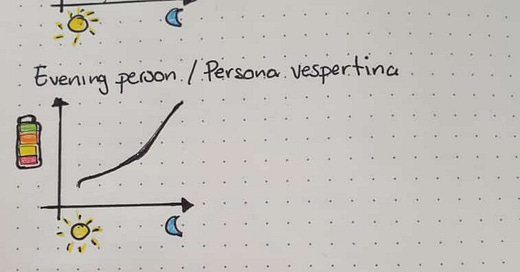 Evening person / Persona vespertina